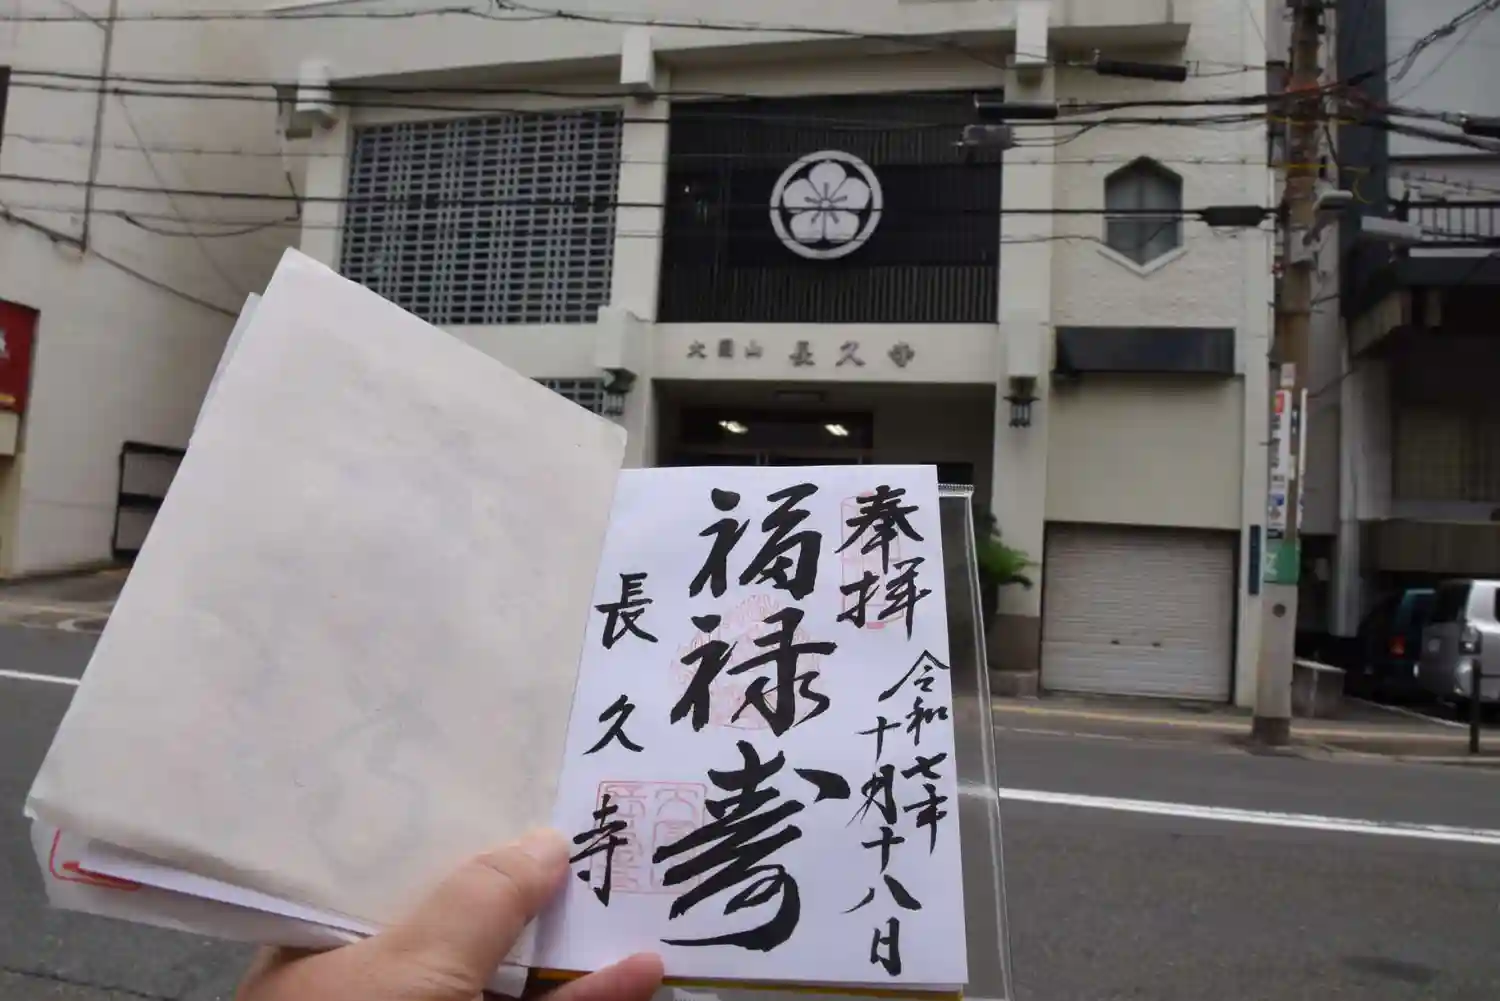 大圓山 長久寺
奉拝
令和七年
十月十八日
福禄寿
長久寺